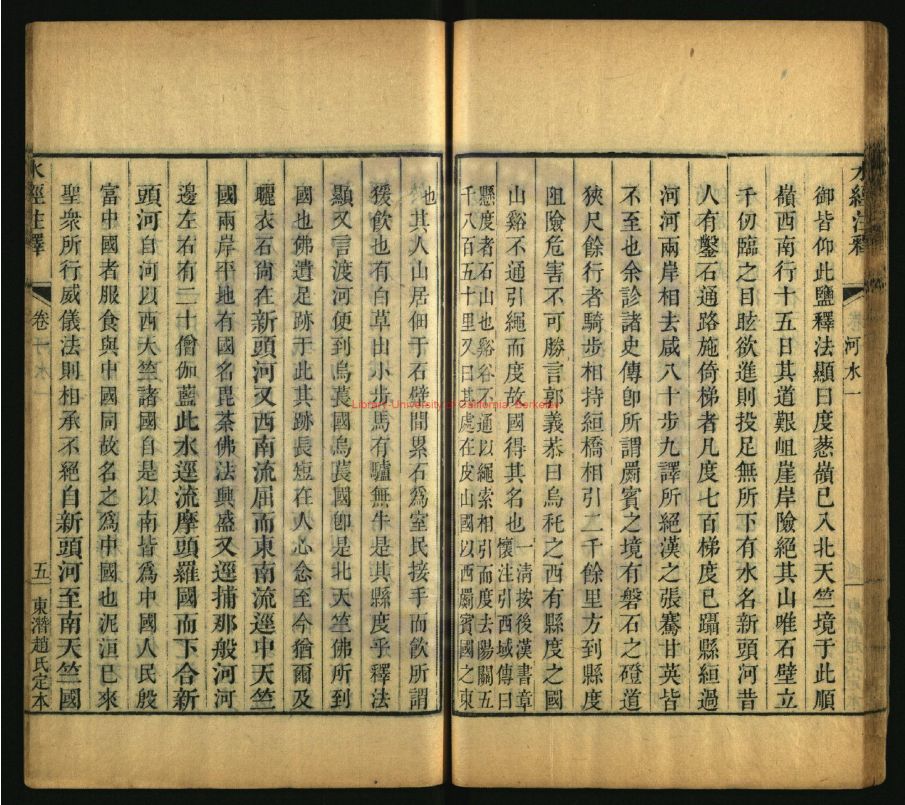 水經注釋
河水一
御皆仰此鹽釋法顯曰度葱嶺已入北天竺境于此順
嶺西南行十五日其道艱岨崖岸險絕其山唯石壁立
千仞臨之目眩欲進則投足無所下有水名新頭河昔
人有鑿石通路施倚梯者凡度七百梯度已躡縣絙過
河河兩岸相去咸八十步九譯所絕漢之張騫甘英皆
不至也余診諸史傳卽所謂罽賓之境有磐石之磴道
狹尺餘行者騎步相持絙橋相引二千餘里方到縣度
阻險危害不可勝言郭義恭曰烏秅之西有縣度之國
山谿不通引繩而度故國得其名也一清按後漢書章
懷注引西域傳曰
懸度者石山也谿谷不通以繩索相引而度去陽關五
千八百五十里又曰其處在皮山國以西罽賓國之東
也
其人山居佃于石壁間累石爲室民接手而飲所謂
猨飲也有白草出小步馬有驢無牛是其縣度乎釋法
顯又言渡河便到烏萇國烏萇國卽是北天竺佛所到
國也佛遺足跡于此其跡長短在人心念至今猶爾及
曬衣石尙在新頭河又西南流屈而東南流逕中天竺
國兩岸平地有國名毘荼佛法興盛又逕捕那般河河
邊左右有二十僧伽藍此水逕流摩頭羅國而下合新
頭河自河以西天竺諸國自是以南皆爲中國人民殷
富中國者服食與中國同故名之爲中國也泥洹已來
聖衆所行威儀法則相承不絕自新頭河至南天竺國
水經注釋
卷一
五
東潛趙氏定本
Library-University of California, Berkeley